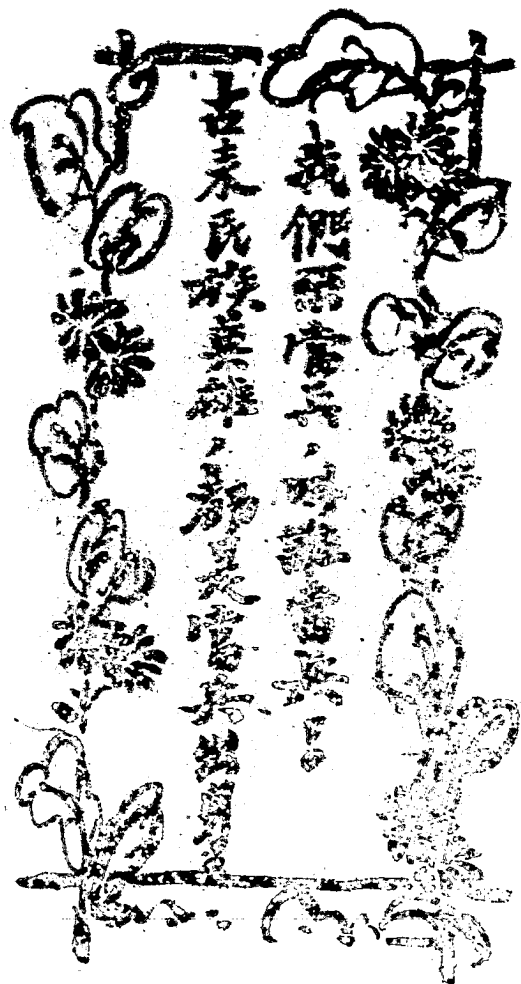 我們當兵，誰當兵！
古來民族英雄，都是當兵出身